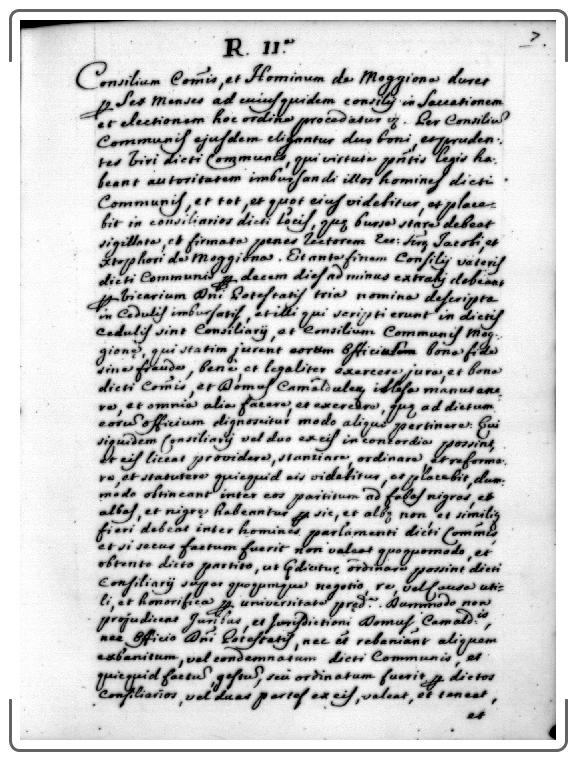 7.
R. II.ª
Consilium Com̄is, et Hominum de Moggiona duret
ꝑ Sex Menses ad cuiusquidem consilij in
et electionem hoc ordine procedatur Per Consiliū
Communis ejusdem eligantur duo boni, et pruden-
tes Viri dicti Communis, qui virtute pn̄tis legis ha-
beant autoritatem imbursandi illos homines dicti
Communis, et tot, et quot eius videbitur, et place-
bit in consiliarios dicti Locis, quę bursę stare debeat
sigillata, et firmata penes Rectorem Jacobi, et
Xtophori de Moggiona. Et ante finem Consilij veteris
dicti Communis ꝑ decem dies ad minus extrahj debeant
ꝑ Vicarium Dn̄i Potestatis tria nomina descripta
in cedulis imbursatis, et illi qui scripti erunt in dictis
cedulis sint Consiliarij, et Consilium Communis Mog-
gionę, qui statim jurent eorum Officium bona fide
sine fraude, bene et legaliter exercere jura, et bona
dicti Com̄is, et Domus Camaldulen illesa manutene-
re, et omnia alia facere, et exercere, quę ad dictum
eorū officium dignoscitur modo aliquo pertinere. Qui
siquidem Consiliarij vel duo ex eis in concordia possint,
et eis liceat providere, stanziare, ordinare et reforma-
re, et statuere quicquid eis videbitur, et placebit, dum-
modo obtineant inter eos partitum ad fabas nigras, et
albas, et nigrę habeantur ꝑ sic, et albę non et similiꝭ
fieri debeat inter homines parlamenti dicti Com̄is,
et si secus factum fuerit non valeat quoquomodo, et
obtento dicto partito, ut ordinare possint dicti
Consiliarij super quoqumque negotio, re, vel causa uti-
li, et honorifica ꝑ universitate pred.ª Dummodo non
prejudicat Juribus, et Jurisdictioni Domus Camald.is,
nec Officio Dn̄i Potestatis, nec ēt rebaniant aliquem
exbanitum, vel condemnatum dicti Communis, et
quicquid factū, gestū, seu ordinatum fuerit ꝑ dictos
Consiliarios, vel duas partes ex eis, valeat, et teneat,
et